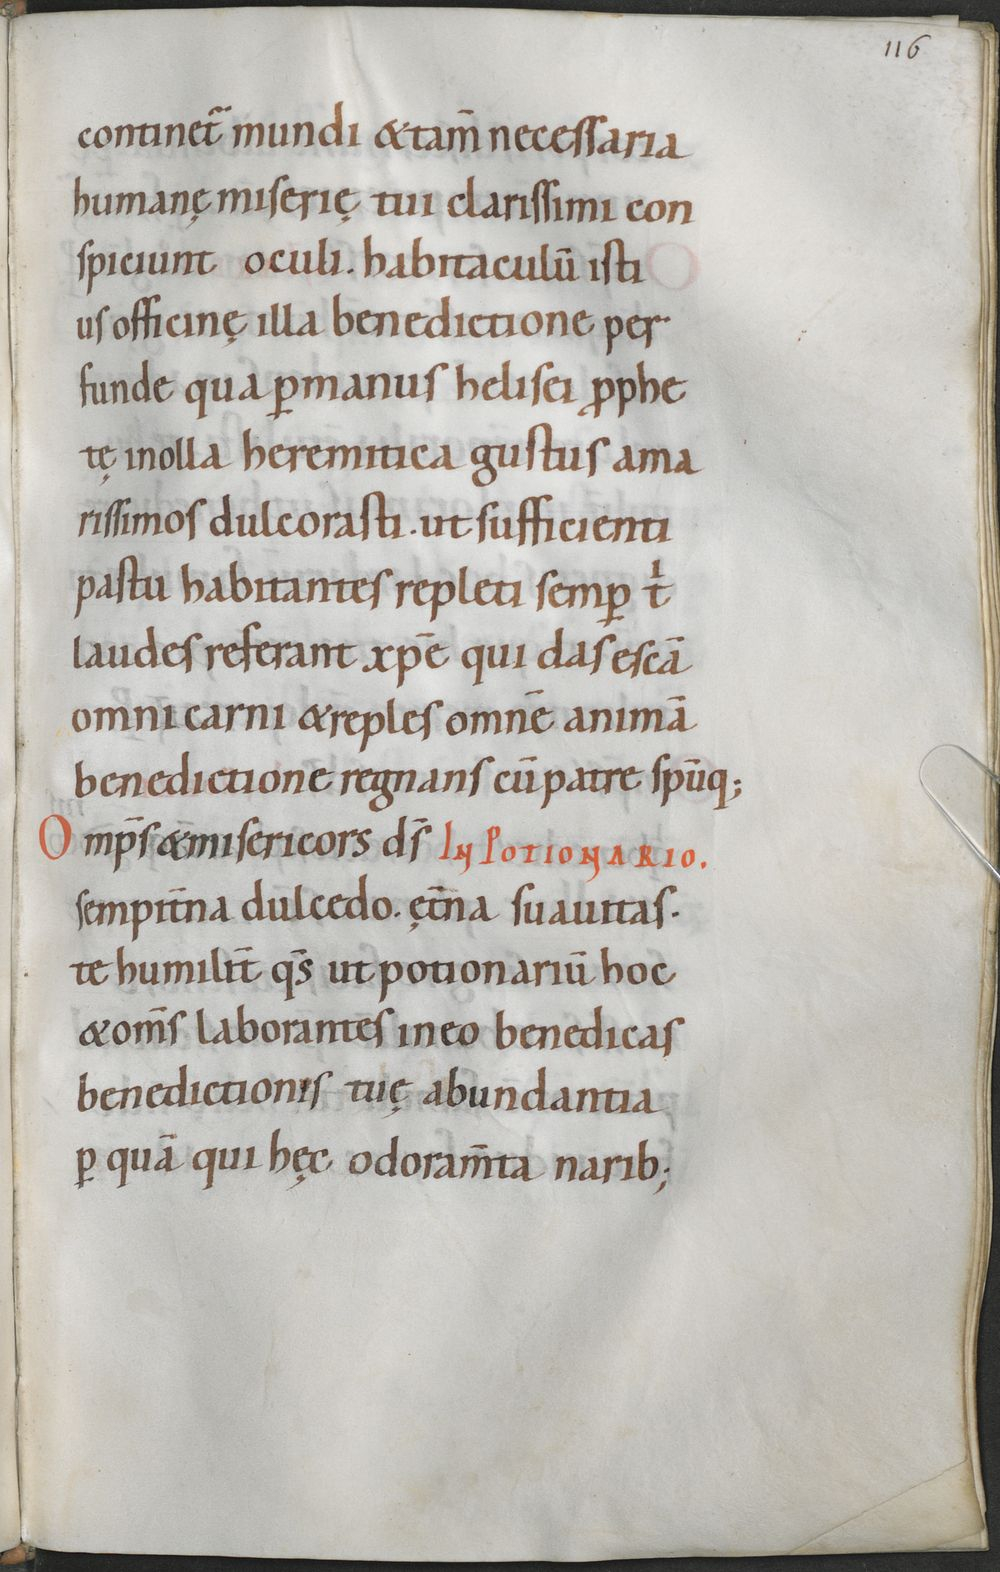 116
continet᷒ mundi &tam̄ necessaria
humanę miserię tui clarissimi con
spiciunt oculi. habitaculū isti
us officinę illa benedictione per
funde qua ꝑmanus helisei ꝓphe
tę inolla heremitica gustus ama
rissimos dulcorasti. ut sufficienti
pastu habitantes repleti semꝑ t̍
laudes referant xp̄e qui das escā
omni carni &reples omnē animā
benedictione regnans cū patre sp̄uq;
Omp̄s &misericors ds̄ IN POTIONARIO.
sempit̄na dulcedo. ęt̄na suauitas.
te humilit̄ qs̄ ut potionariū hoc
&om̄s laborantes ineo benedicas
benedictionis tuę abundantia
ꝑ quā qui hęc odoram̄ta narib;